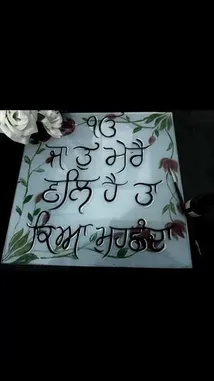 ੴ
ਜਾ ਤੂ ਮੇਰੈ
ਵਲਿ ਹੈ ਤਾ
ਕਿਆ ਮੁਹਛੰਦਾ